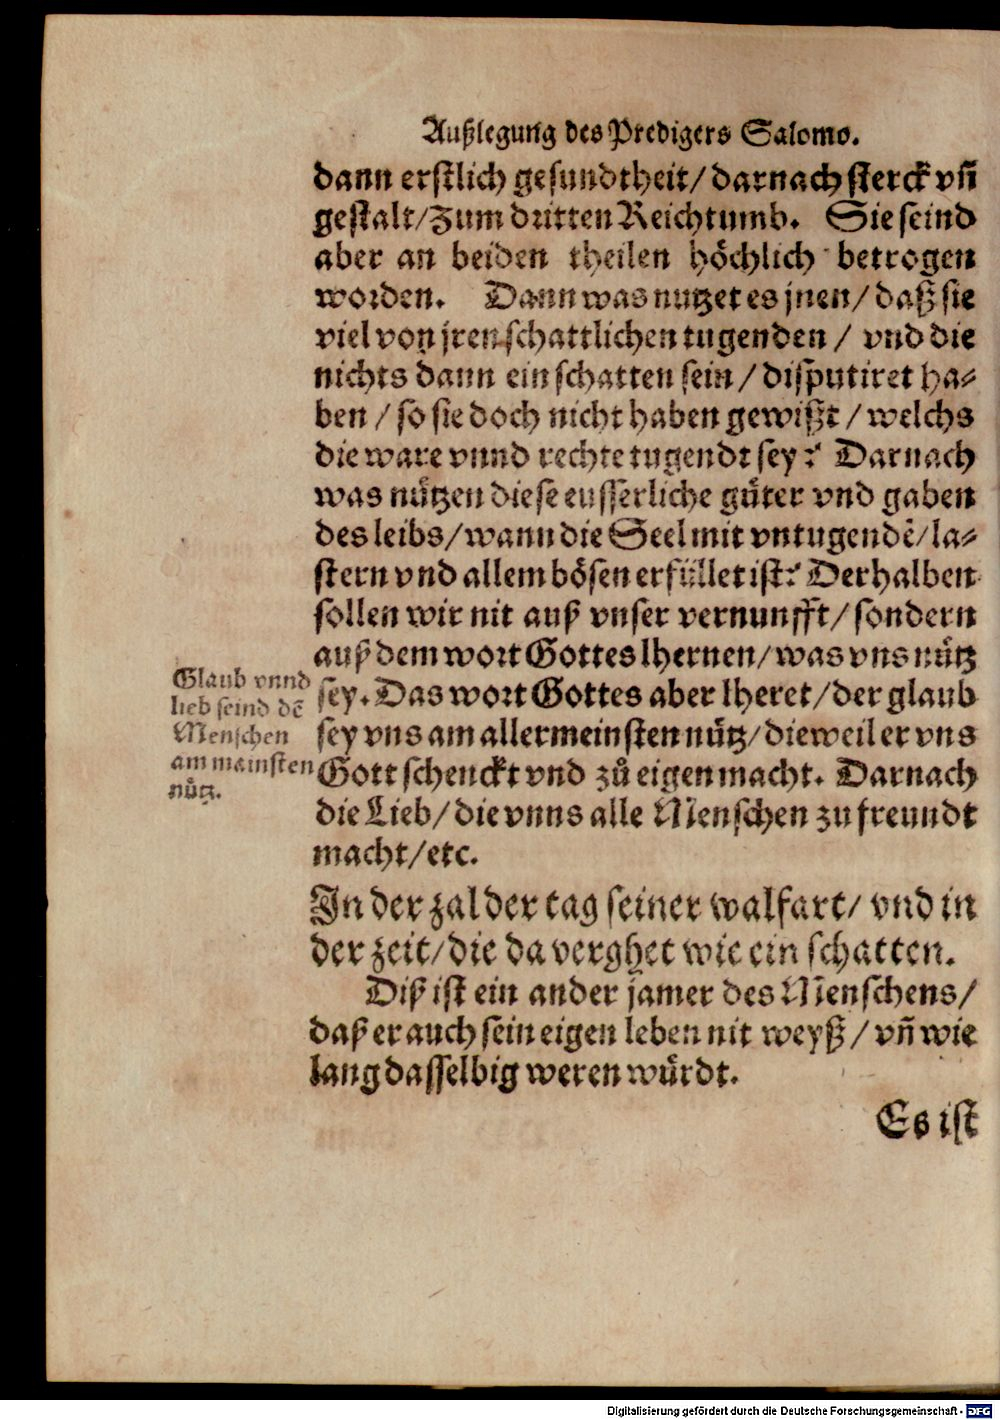 Außlegung des Predigers Salomo.
dann erstlich gesundtheit/ darnach sterck vñ
gestalt/ Zum dritten Reichtumb. Sie seind
aber an beiden theilen höchlich betrogen
worden. Dann was nutzet es jnen/ daß sie
viel von jren schattlichen tugenden/ vnd die
nichts dann ein schatten sein/ disputiret ha⸗
ben/ so sie doch nicht haben gewißt/ welchs
die ware vnnd rechte tugendt sey? Darnach
was nützen diese eusserliche güter vnd gaben
des leibs/ wann die Seel mit vntugendẽ/ la⸗
stern vnd allem bösen erfüllet ist? Derhalben
sollen wir nit auß vnser vernunfft/ sondern
auß dem wort Gottes lhernen/ was vns nütz
sey. Das wort Gottes aber lheret/ der glaub
sey vns am allermeinsten nütz/ dieweil er vns
Gott schenckt vnd zů eigen macht. Darnach
die Lieb/ die vnns alle Menschen zu freundt
macht/ etc.
Glaub vnnd
lieb seind dẽ
Menschen
am mainsten
nütz.
In der zal der tag seiner walfart/ vnd in
der zeit/ die da verghet wie ein schatten.
Diß ist ein ander jamer des Menschens/
daß er auch sein eigen leben nit weyß/ vñ wie
lang dasselbig weren würdt.
Es ist
Digitalisierung gefördert durch die Deutsche Forschungsgemeinschaft - DFG